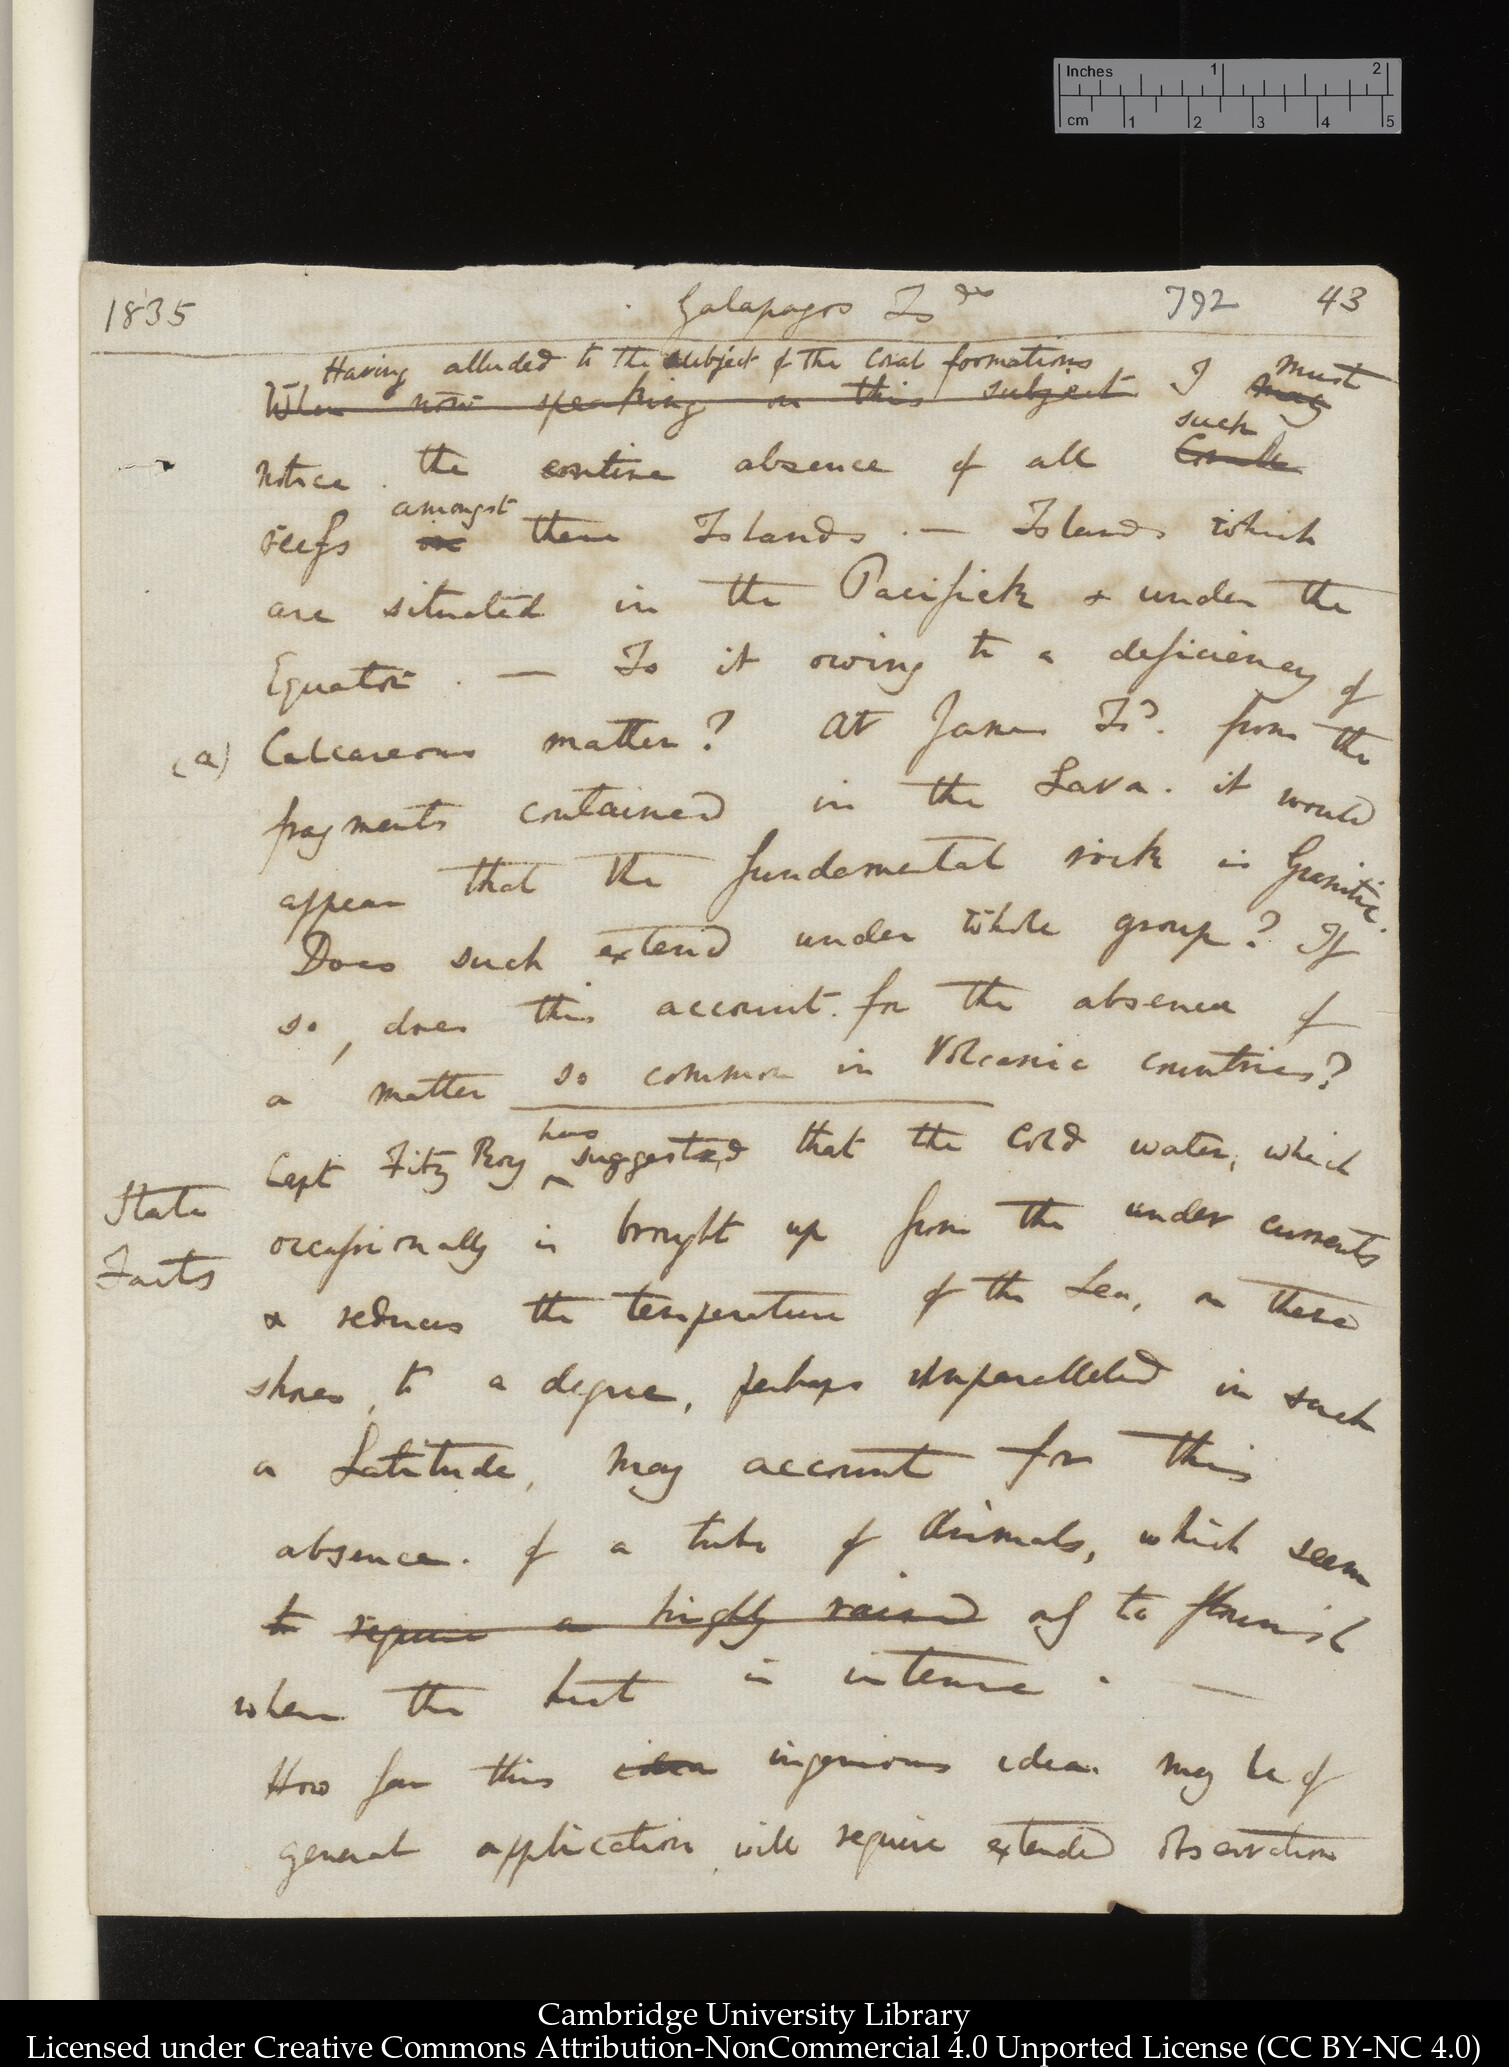 Inches 1 2
cm 1 2 3 4 5
1835 Galapagos Is ds 792 43
Having alluded to the subject of the coral formations must
When now speaking on this subject I may
such
notice the entire absence of all Coralls
amongst
reefs in these Islands. — Islands which
are situated in the Pacifick & under the
Equator. — Is it owing to a deficiency of
(a) Calcareous matter? At James Isd. from the
fragments contained in the Lava. it would
appear that the fundamental rock is Granitic.
Does such extend under whole group? If
so, does this account for the absence of
a matter so common in Volcanic countries?
has
Capt Fitz Roy ^ suggested that the cold water, which
State
occasionally is brought up from the under currents
Facts
& reduces the temperature of the Sea, on these
shores, to a degree, perhaps unparalleled in such
a Latitude, may account for this
absence. of a tribe of Animals, which seem
to require a highly raised only to flourish
when the heat is intense. —
How far this idea ingenious idea may be of
general application, will require extended observation
Cambridge University Library
Licensed under Creative Commons Attribution-NonCommercial 4.0 Unported License (CC BY-NC 4.0)